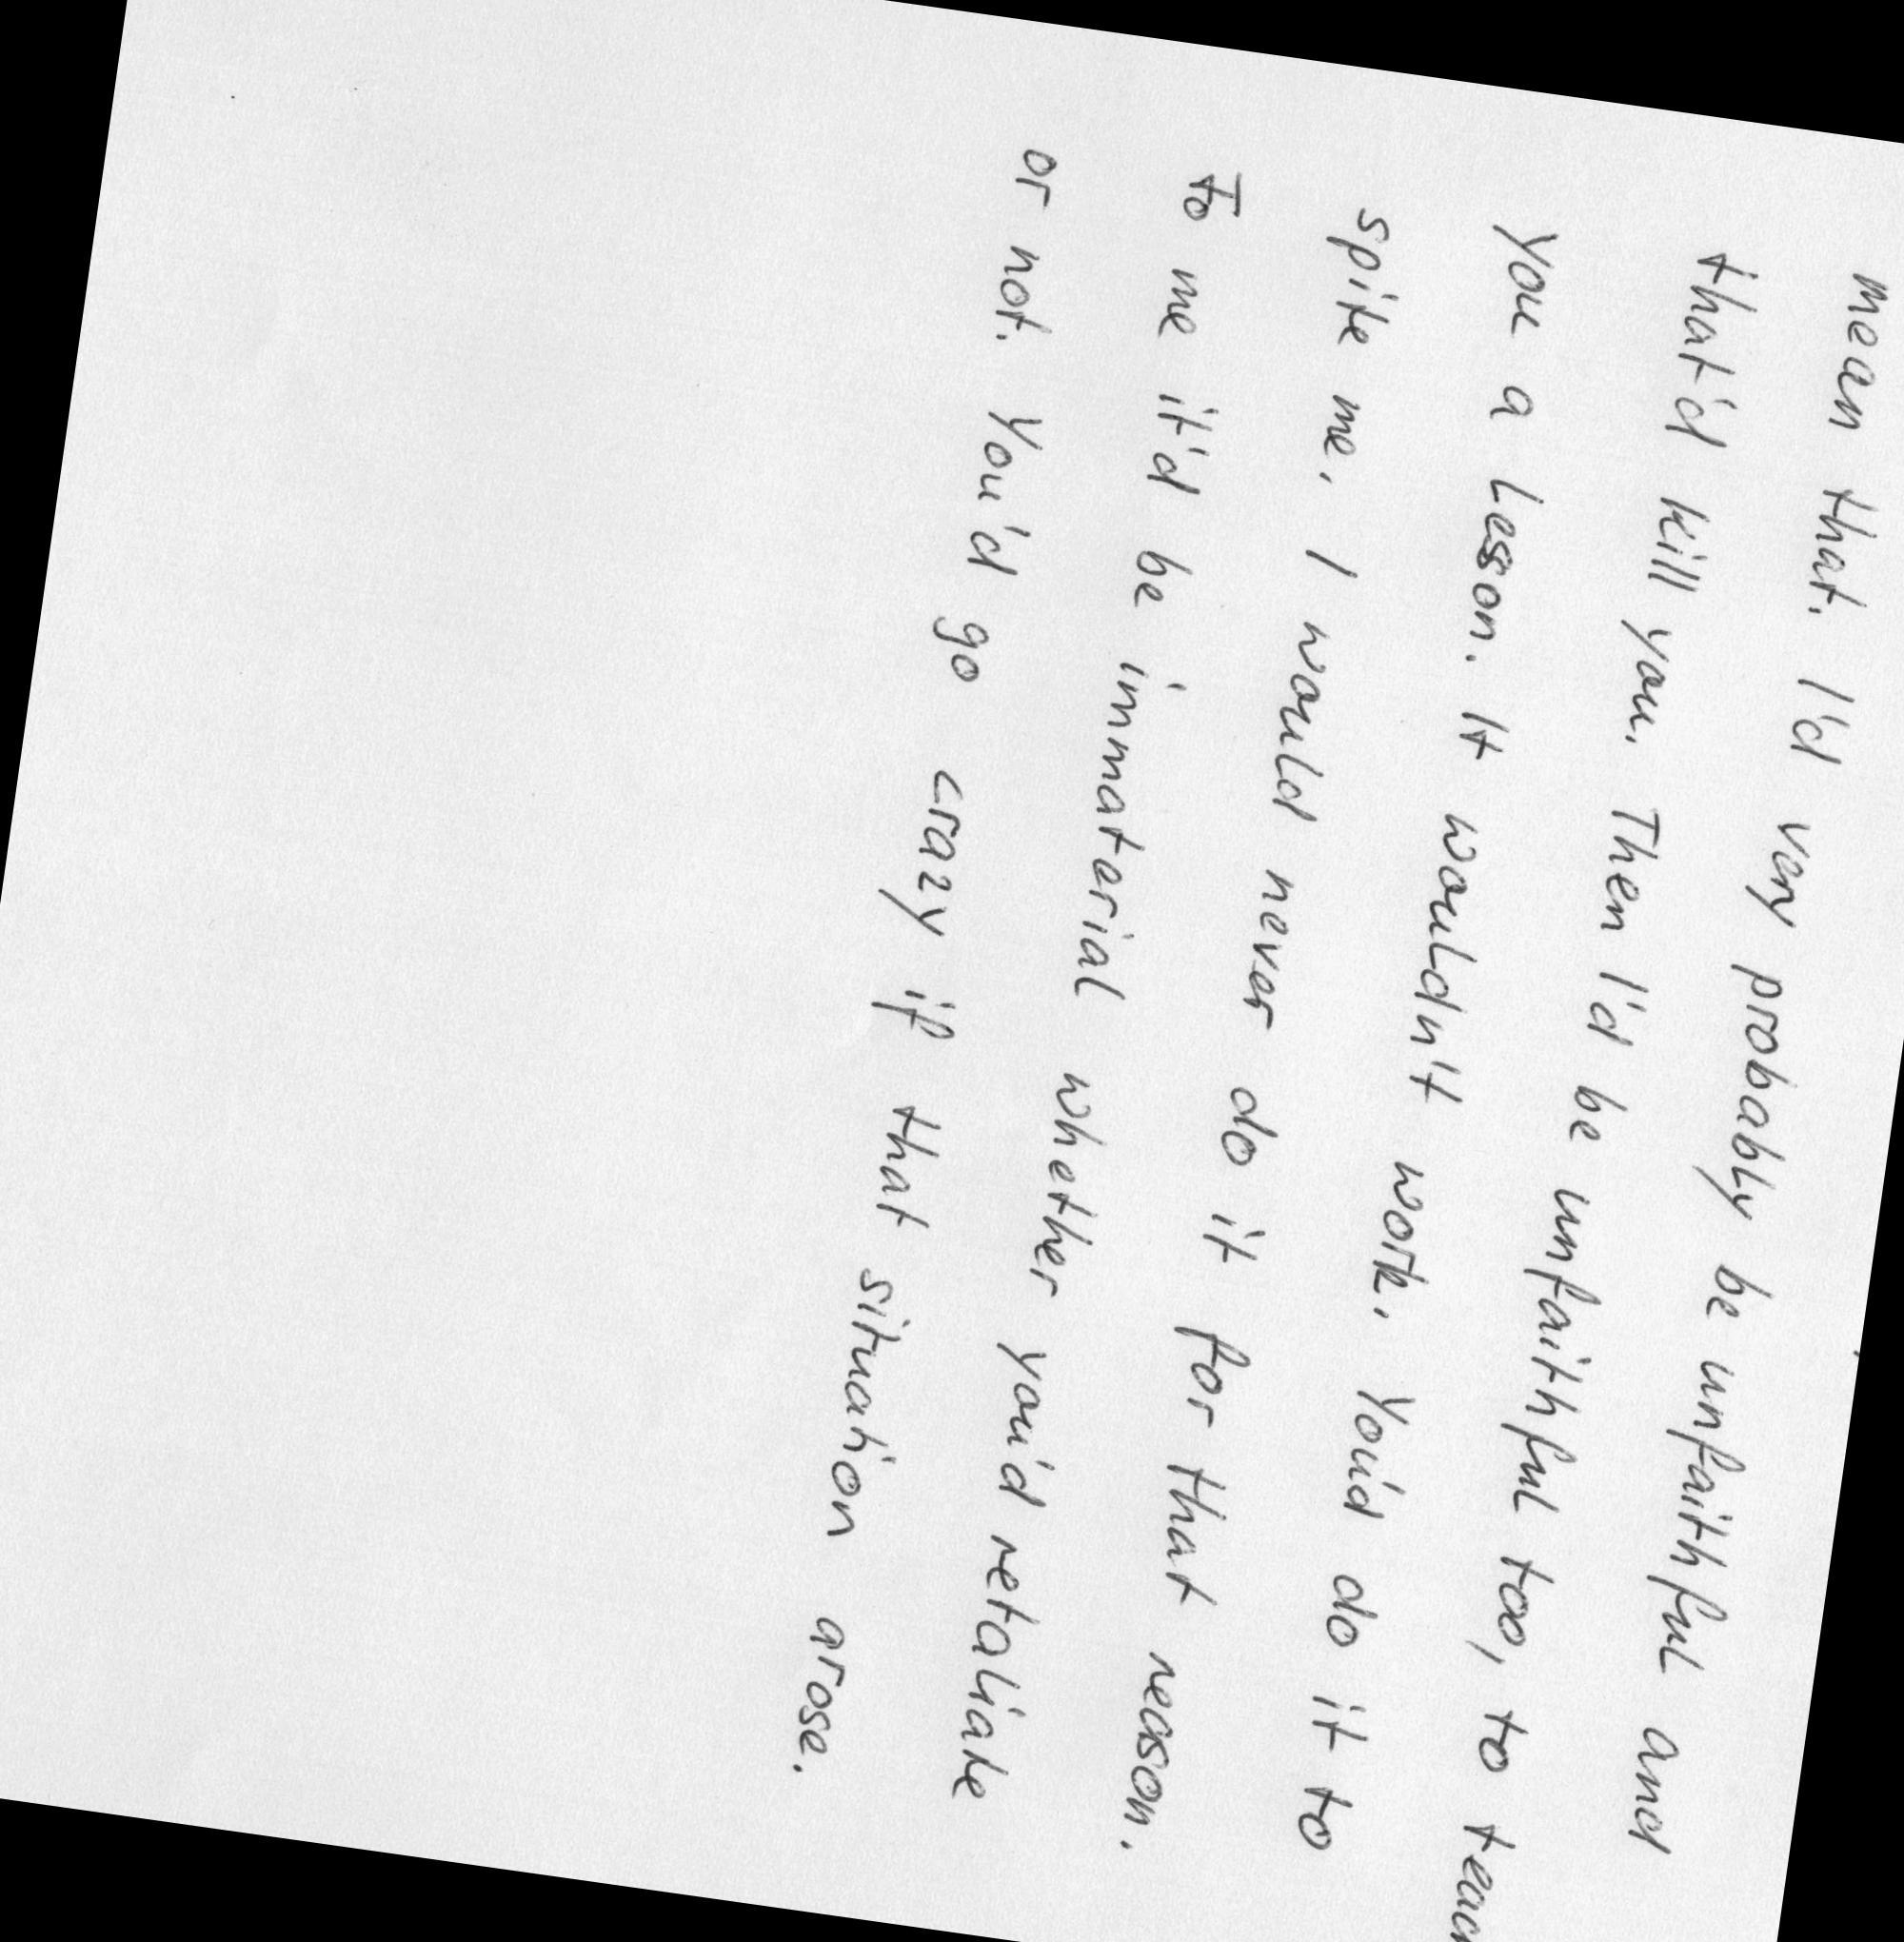 mean that. I'd very probably be unfaithful and
that'd kill you. Then I'd be unfaithful too, to teac
you a Lesson. It wouldn't work. You'd do it to
spite me. I would never do it for that reason.
To me it'd be immaterial whether you'd retaliate
or not. You'd go crazy if that situation arose.